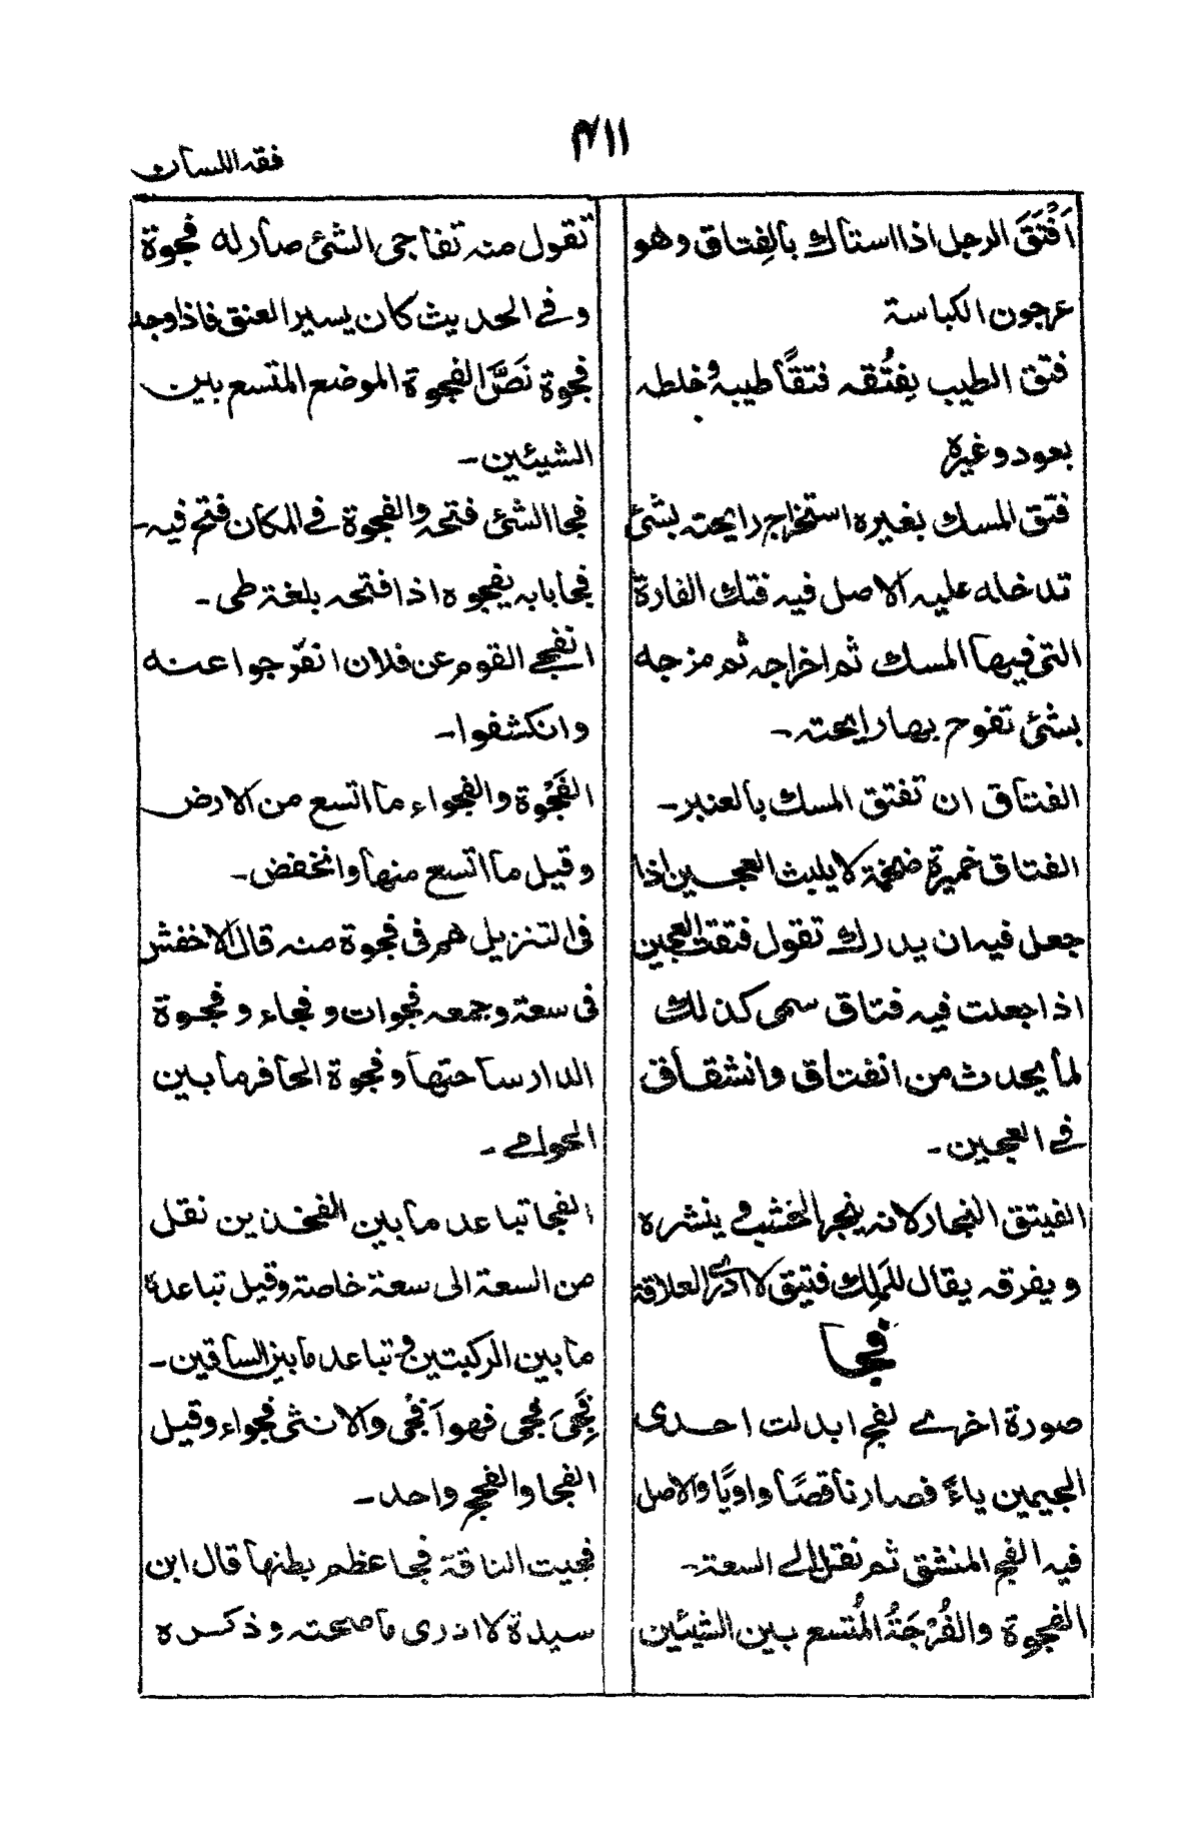 ۴۱۱
فقه اللسان
اَفْتَقَ الرجل اذا استاك بالفِتاق وهو
عرجون الكباسة
فتق الطيب يفتُقه فتقًا طيبه وخلطه
بعود وغيره
فتق المسك بغيره استخراج رايحته بشئ
تدخله عليه الاصل فيه فتك الفارة
التى فيها المسك ثم اخراجه ثم مزجه
بشئ تفوح بها رايحته -
الفتاق ان تفتق المسك بالعنبر -
الفتاق خميرة ضخمة لا يلبث العجين اذا
جعل فيه ان يدرك تقول فتقت العجين
اذا جعلت فيه فتاق سمى كذلك
لما يحدث من انفتاق وانشقاق
فى العجين -
الفيتق النجار لانه ينجر الخشب فى ينشره
ويفرقه يقال للمَلِك فتيق لا ادرى العلاقة
فجا
صورة اخرى لفج ابدلت احدى
الجيمين ياءً فصار ناقصًا واويًا والاصل
فيه الفج المنشق ثم نقل الى السعة -
الفجوة والفُرْجَةُ المُتسع بين الشيئين
تقول منه تفاجى الشئ صار له فجوة
وفى الحديث كان يسير العنق فاذا وجد
فجوة نَصَّ الفجوة الموضع المتسع بين
الشيئين -
فجا الشئ فتحه والفجوة فى المكان فتح فيه -
فجا بابه يفجوه اذا فتحه بلغة طى -
انفجى القوم عن فلان انفرّجوا عنه
وانكشفوا -
الفَجْوة والفجواء ما اتسع من الارض
وقيل ما اتسع منها وانخفض -
فى التنزيل هم فى فجوة منه قال الاخفش
فى سعة وجمعه فجوات وفجاء وفجوة
الدار ساحتها وفجوة الحافر ما بين
الحوامى -
الفجا تباعد ما بين الفخذين نقل
من السعة الى سعة خاصة وقيل تباعدة
ما بين الركبتين و تباعد ما بين الساقين -
فَجِىَ فجى فهو اَفجى والانثى فجواء وقيل
الفجا والفجج واحد -
فجيت الناقة فجا عظم بطنها قال ابن
سيدة لا ادرى ما صحته وذكره